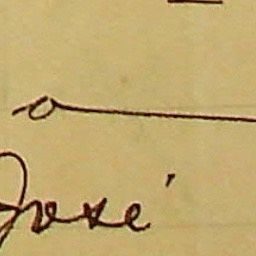 a
José